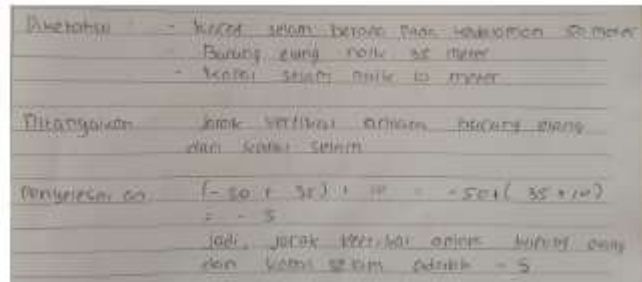 Diketahui - Kapal selam berada pada kedalaman 50 meter
- Burung elang naik 35 meter
- Kapal selam naik 10 meter
Ditanyakan Jarak vertikal antara burung elang
dan kapal selam
Penyelesaian (-50 + 35) + 10 = -50 + ( 35 + 10)
= - 5
Jadi, jarak vertikal antara burung elang
dan kapal selam adalah - 5